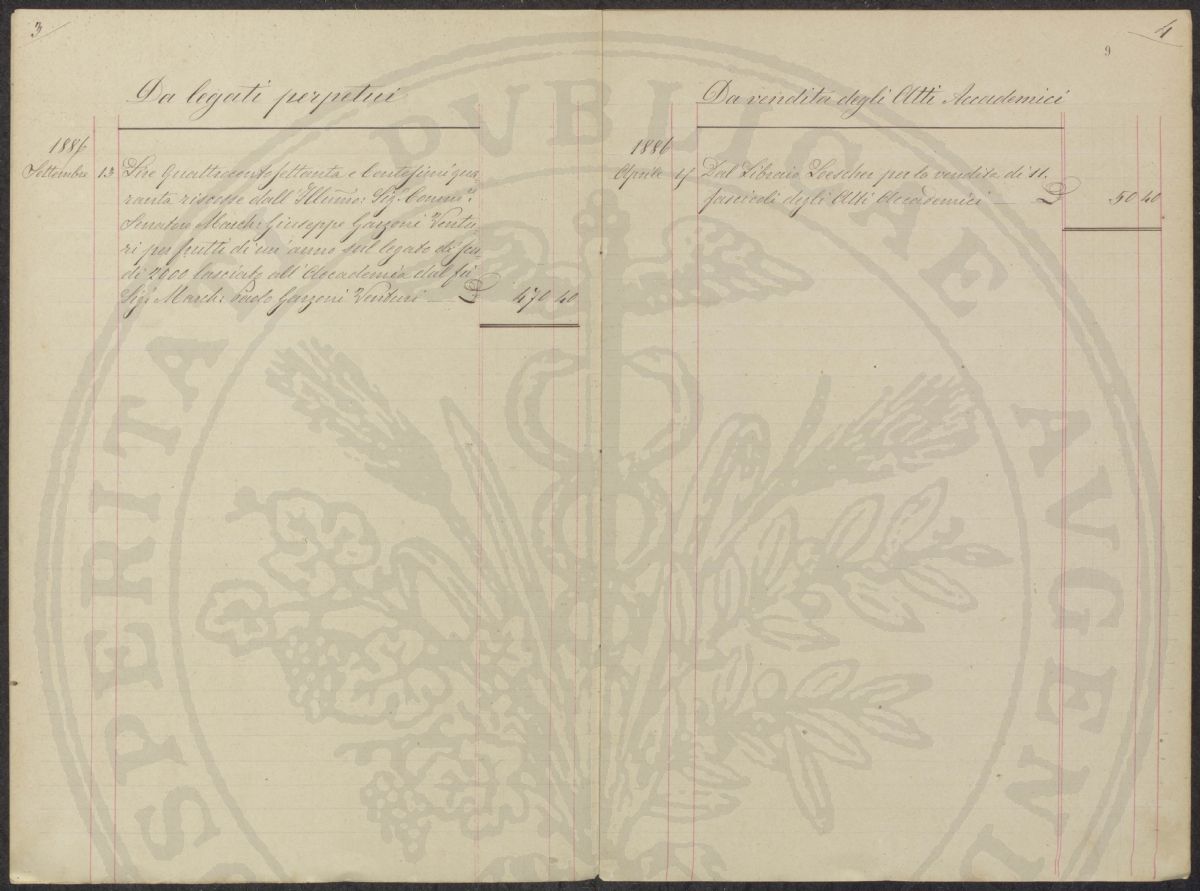 3
Da legati perpetui
1886
Settembre 13 Lire Quattrocento settanta e Centesimi qua-
ranta riscosse dall' Illumo: Sigr Comm:
Senatore March: Giuseppe Garzoni Ventu-
ri per frutti di un' anno sul legato di scu-
di 2000 lasciato all' Accademia dal fu
Sigr March: Paolo Garzoni Venturi £ 470 40
4
9
Da vendita degli Atti Accademici
1886
Aprile 15 Dal Libraio Loescher per la vendita di 11.
fascicoli degli Atti Accademici £ 50 40
PROSPERITATI PUBLICAE AVGENDAE